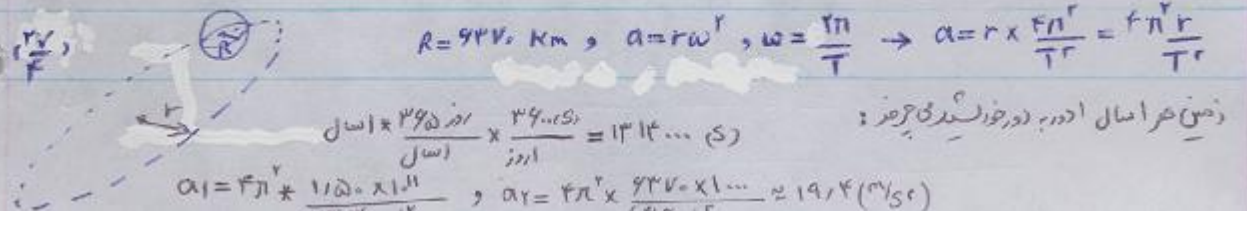 R = ۶۳۷۰ Km , a = rω^۲ , ω = ۲π/T → a = r × ۴π^۲/T^۲ = ۴π^۲ r/T^۲
R
r
زمین هر ۱ سال ۱ دور به دور خورشید می چرخد :
۱ سال * ۳۶۵ روز/۱ سال × ۳۶۰۰(s)/۱ روز = ۱۳۱۴۰۰۰ (s)
a۱ = ۴π^۲ * ۱٫۵۰ × ۱۰^۱۱ , a۲ = ۴π^۲ × ۶۳۷۰ × ۱۰۰۰ ≈ ۱۹٫۴ (m/s۲)